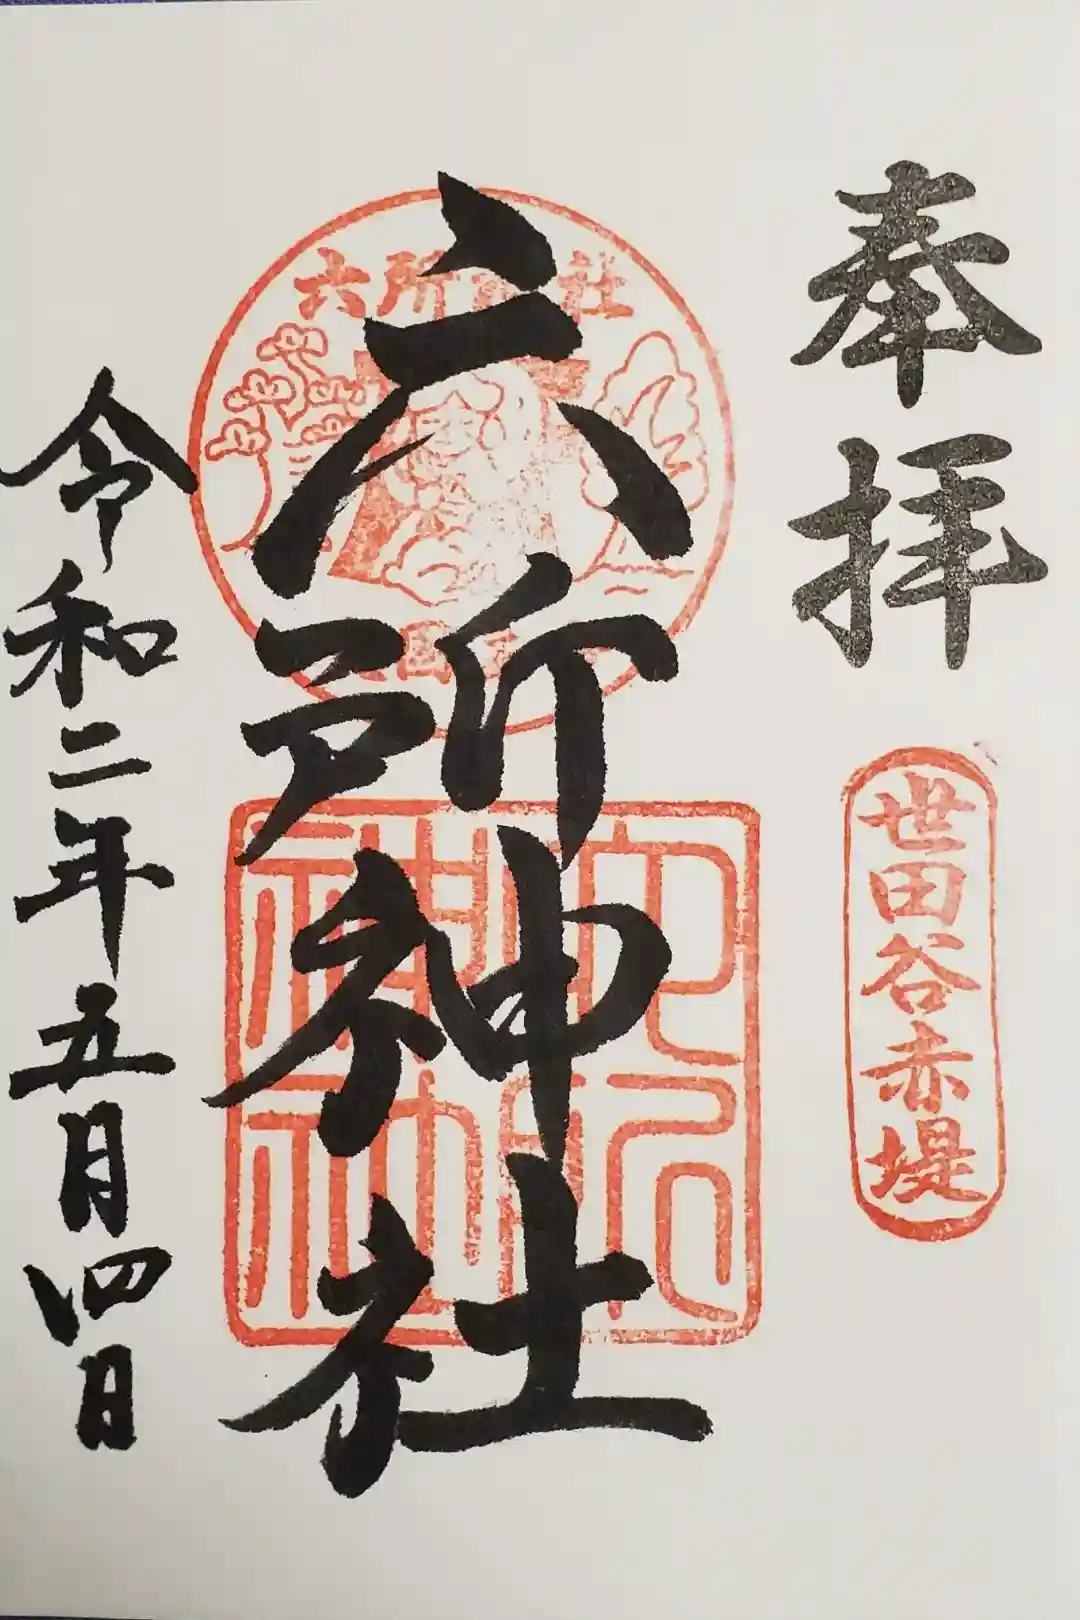 奉拝
世田谷赤堤
六所神社
六所神社
六所神社
令和二年五月四日